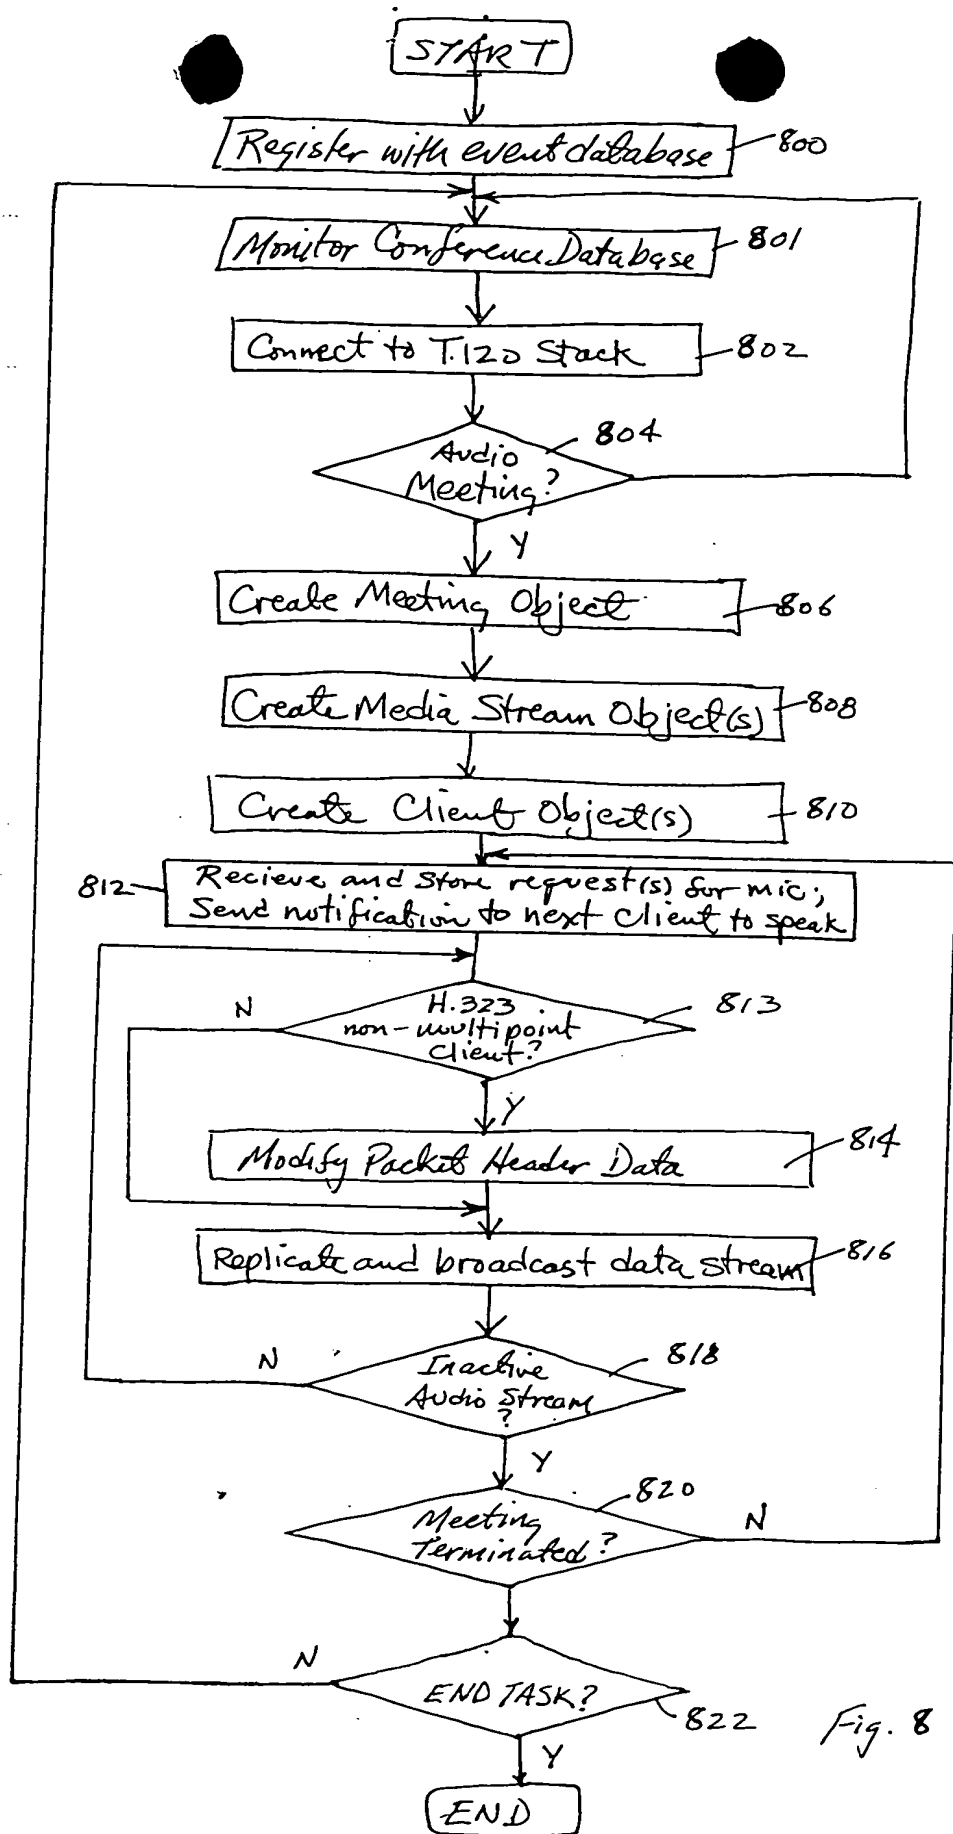 START
Register with event database
800
Monitor Conference Database
801
Connect to T.120 Stack
802
804
Audio
Meeting?
Y
Create Meeting Object
806
Create Media Stream Object(s)
808
Create Client Object(s)
810
812
Recieve and Store request(s) for mic;
Send notification to next Client to speak
N
H.323
non-multipoint
Client?
813
Y
Modify Packet Header Data
814
Replicate and broadcast data stream
816
N
Inactive
Audio Stream
?
818
Y
820
Meeting
Terminated?
N
N
END TASK?
822
Fig. 8
Y
END